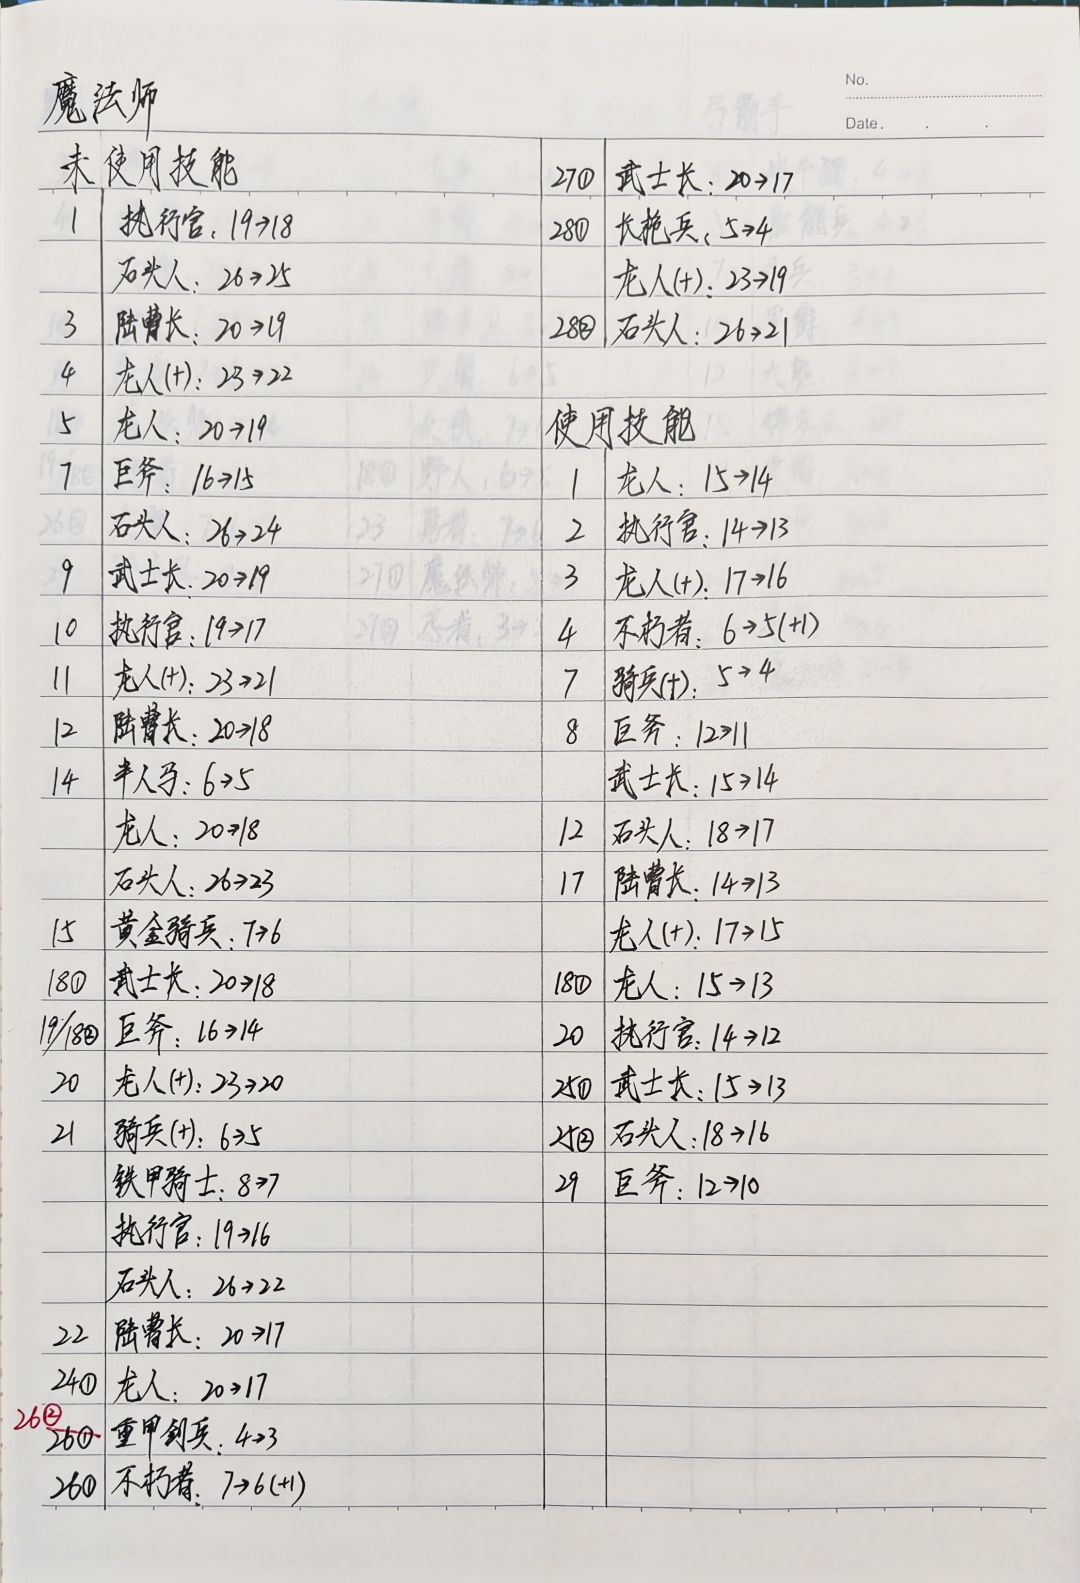 No.
Date.
魔法师
未使用技能
1 执行官：19→18
石头人：26→25
3 陆曹长：20→19
4 龙人(+)：23→22
5 龙人：20→19
7 巨斧：16→15
石头人：26→24
9 武士长：20→19
10 执行官：19→17
11 龙人(+)：23→21
12 陆曹长：20→18
14 半人马：6→5
龙人：20→18
石头人：26→23
15 黄金骑兵：7→6
18① 武士长：20→18
19/18② 巨斧：16→14
20 龙人(+)：23→20
21 骑兵(+)：6→5
铁甲骑士：8→7
执行官：19→16
石头人：26→22
22 陆曹长：20→17
24① 龙人：20→17
26②
26① 重甲剑兵：4→3
26① 不朽者：7→6(+1)
27① 武士长：20→17
28① 长枪兵：5→4
龙人(+)：23→19
28② 石头人：26→21
使用技能
1 龙人：15→14
2 执行官：14→13
3 龙人(+)：17→16
4 不朽者：6→5(+1)
7 骑兵(+)：5→4
8 巨斧：12→11
武士长：15→14
12 石头人：18→17
17 陆曹长：14→13
龙人(+)：17→15
18① 龙人：15→13
20 执行官：14→12
25① 武士长：15→13
25② 石头人：18→16
29 巨斧：12→10